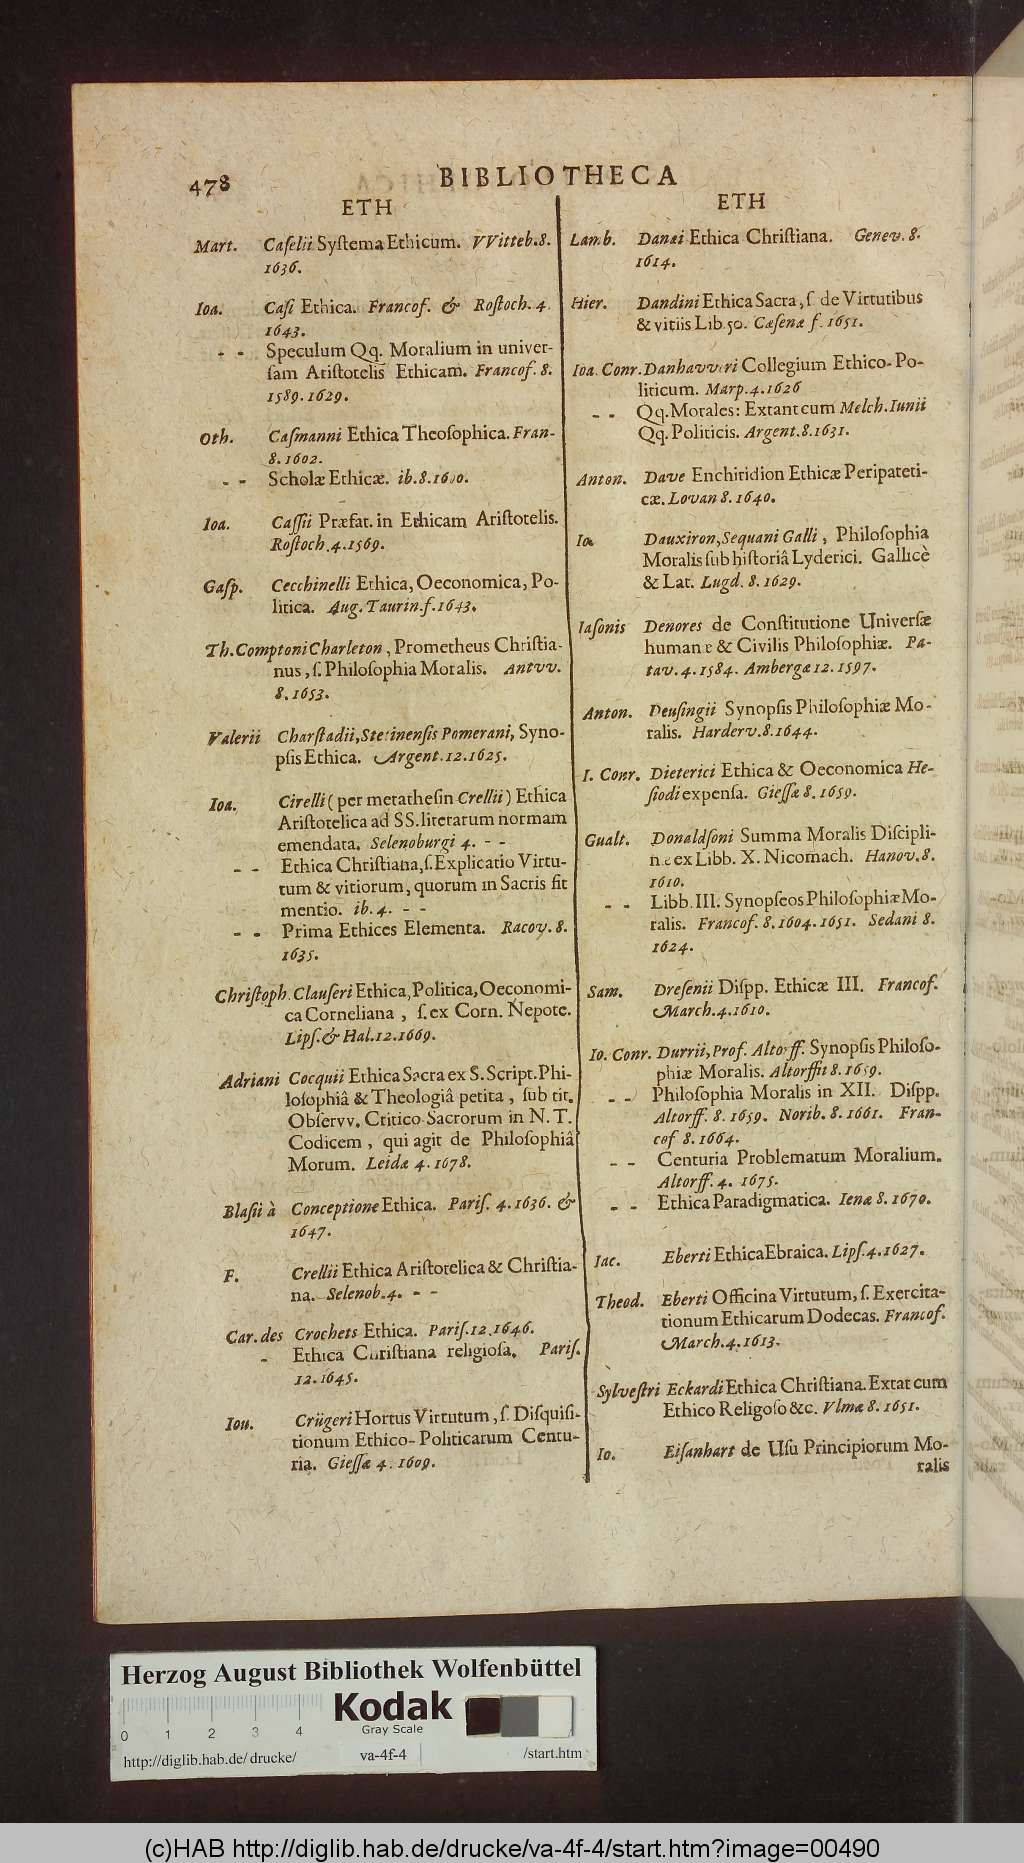 478
BIBLIOTHECA
ETH
Mart. Caſelii Syſtema Ethicum. VVitteb. 8.
1636.
Ioa. Caſi Ethica. Francof. & Roſtoch. 4.
1643.
- - Speculum Qq. Moralium in univer-
ſam Ariſtotelis Ethicam. Francof. 8.
1589. 1629.
Oth. Caſmanni Ethica Theoſophica. Fran-
8. 1602.
- - Scholæ Ethicæ. ib. 8. 1600.
Ioa. Caſſii Præfat. in Ethicam Ariſtotelis.
Roſtoch. 4. 1569.
Gaſp. Cecchinelli Ethica, Oeconomica, Po-
litica. Aug. Taurin. f. 1643.
Th. Comptoni Charleton, Prometheus Chriſtia-
nus, ſ. Philoſophia Moralis. Antvv.
8. 1653.
Valerii Charſtadii, Stetinenſis Pomerani, Syno-
pſis Ethica. Argent. 12. 1625.
Ioa. Cirelli (per metatheſin Crellii) Ethica
Ariſtotelica ad SS. literarum normam
emendata. Selenoburgi 4. - -
- - Ethica Chriſtiana, ſ. Explicatio Virtu-
tum & vitiorum, quorum in Sacris fit
mentio. ib. 4. - -
- - Prima Ethices Elementa. Racov. 8.
1635.
Chriſtoph. Clauſeri Ethica, Politica, Oeconomi-
ca Corneliana, ſ. ex Corn. Nepote.
Lipſ. & Hal. 12. 1669.
Adriani Cocquii Ethica Sacra ex S. Script. Phi-
loſophiâ & Theologiâ petita, ſub tit.
Obſervv. Critico-Sacrorum in N. T.
Codicem, qui agit de Philoſophiâ
Morum. Leidæ 4. 1678.
Blaſii à Conceptione Ethica. Pariſ. 4. 1636. &
1647.
F. Crellii Ethica Ariſtotelica & Chriſtia-
na. Selenob. 4. - -
Car. des Crochets Ethica. Pariſ. 12. 1646.
- Ethica Chriſtiana religioſa. Pariſ.
12. 1645.
Iou. Crügeri Hortus Virtutum, ſ. Diſquiſi-
tionum Ethico-Politicarum Centu-
ria. Gieſſæ 4. 1609.
ETH
Lamb. Danæi Ethica Chriſtiana. Genev. 8.
1614.
Hier. Dandini Ethica Sacra, ſ. de Virtutibus
& vitiis Lib. 50. Cæſenæ f. 1651.
Ioa. Conr. Danhavveri Collegium Ethico-Po-
liticum. Marp. 4. 1626
- - Qq. Morales: Extant cum Melch. Iunii
Qq. Politicis. Argent. 8. 1631.
Anton. Dave Enchiridion Ethicæ Peripateti-
cæ. Lovan 8. 1640.
Io. Dauxiron, Sequani Galli, Philoſophia
Moralis ſub hiſtoriâ Lyderici. Gallicè
& Lat. Lugd. 8. 1629.
Iaſonis Denores de Conſtitutione Univerſæ
humanæ & Civilis Philoſophiæ. Pa-
tav. 4. 1584. Ambergæ 12. 1597.
Anton. Deuſingii Synopſis Philoſophiæ Mo-
ralis. Harderv. 8. 1644.
I. Conr. Dieterici Ethica & Oeconomica He-
ſiodi expenſa. Gieſſæ 8. 1659.
Gualt. Donaldſoni Summa Moralis Diſcipli-
næ ex Libb. X. Nicomach. Hanov. 8.
1610.
- - Libb. III. Synopſeos Philoſophiæ Mo-
ralis. Francof. 8. 1604. 1651. Sedani 8.
1624.
Sam. Dreſenii Diſpp. Ethicæ III. Francof.
March. 4. 1610.
Io. Conr. Durrii, Prof. Altorff. Synopſis Philoſo-
phiæ Moralis. Altorffii 8. 1659.
- - Philoſophia Moralis in XII. Diſpp.
Altorff. 8. 1659. Norib. 8. 1661. Fran-
cof 8. 1664.
- - Centuria Problematum Moralium.
Altorff. 4. 1675.
- - Ethica Paradigmatica. Ienæ 8. 1670.
Iac. Eberti Ethica Ebraica. Lipſ. 4. 1627.
Theod. Eberti Officina Virtutum, ſ. Exercita-
tionum Ethicarum Dodecas. Francof.
March. 4. 1613.
Sylveſtri Eckardi Ethica Chriſtiana. Extat cum
Ethico Religoſo &c. Vlmæ 8. 1651.
Io. Eiſanhart de Uſu Principiorum Mo-
ralis
Herzog August Bibliothek Wolfenbüttel
Kodak
Gray Scale
0 1 2 3 4
http://diglib.hab.de/drucke/ va-4f-4 /start.htm
(c)HAB http://diglib.hab.de/drucke/va-4f-4/start.htm?image=00490